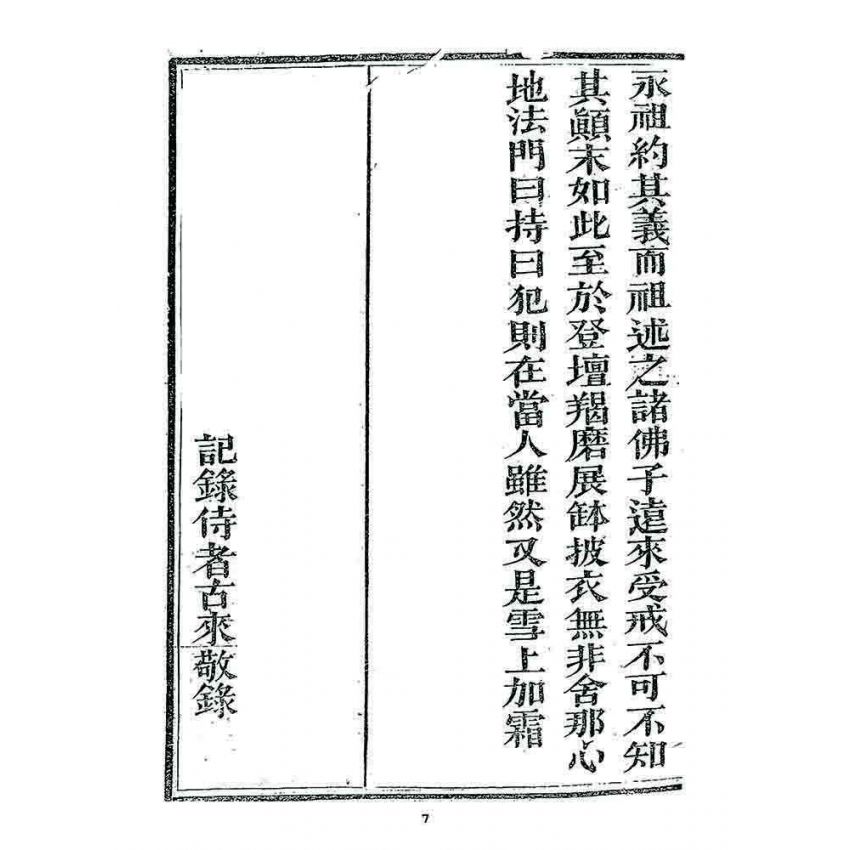 永祖約其義而祖述之諸佛子遠來受戒不可不知
其顚末如此至於登壇羯磨展鉢披衣無非舍那心
地法門曰持曰犯則在當人雖然又是雪上加霜
記錄侍者古來敬錄
7